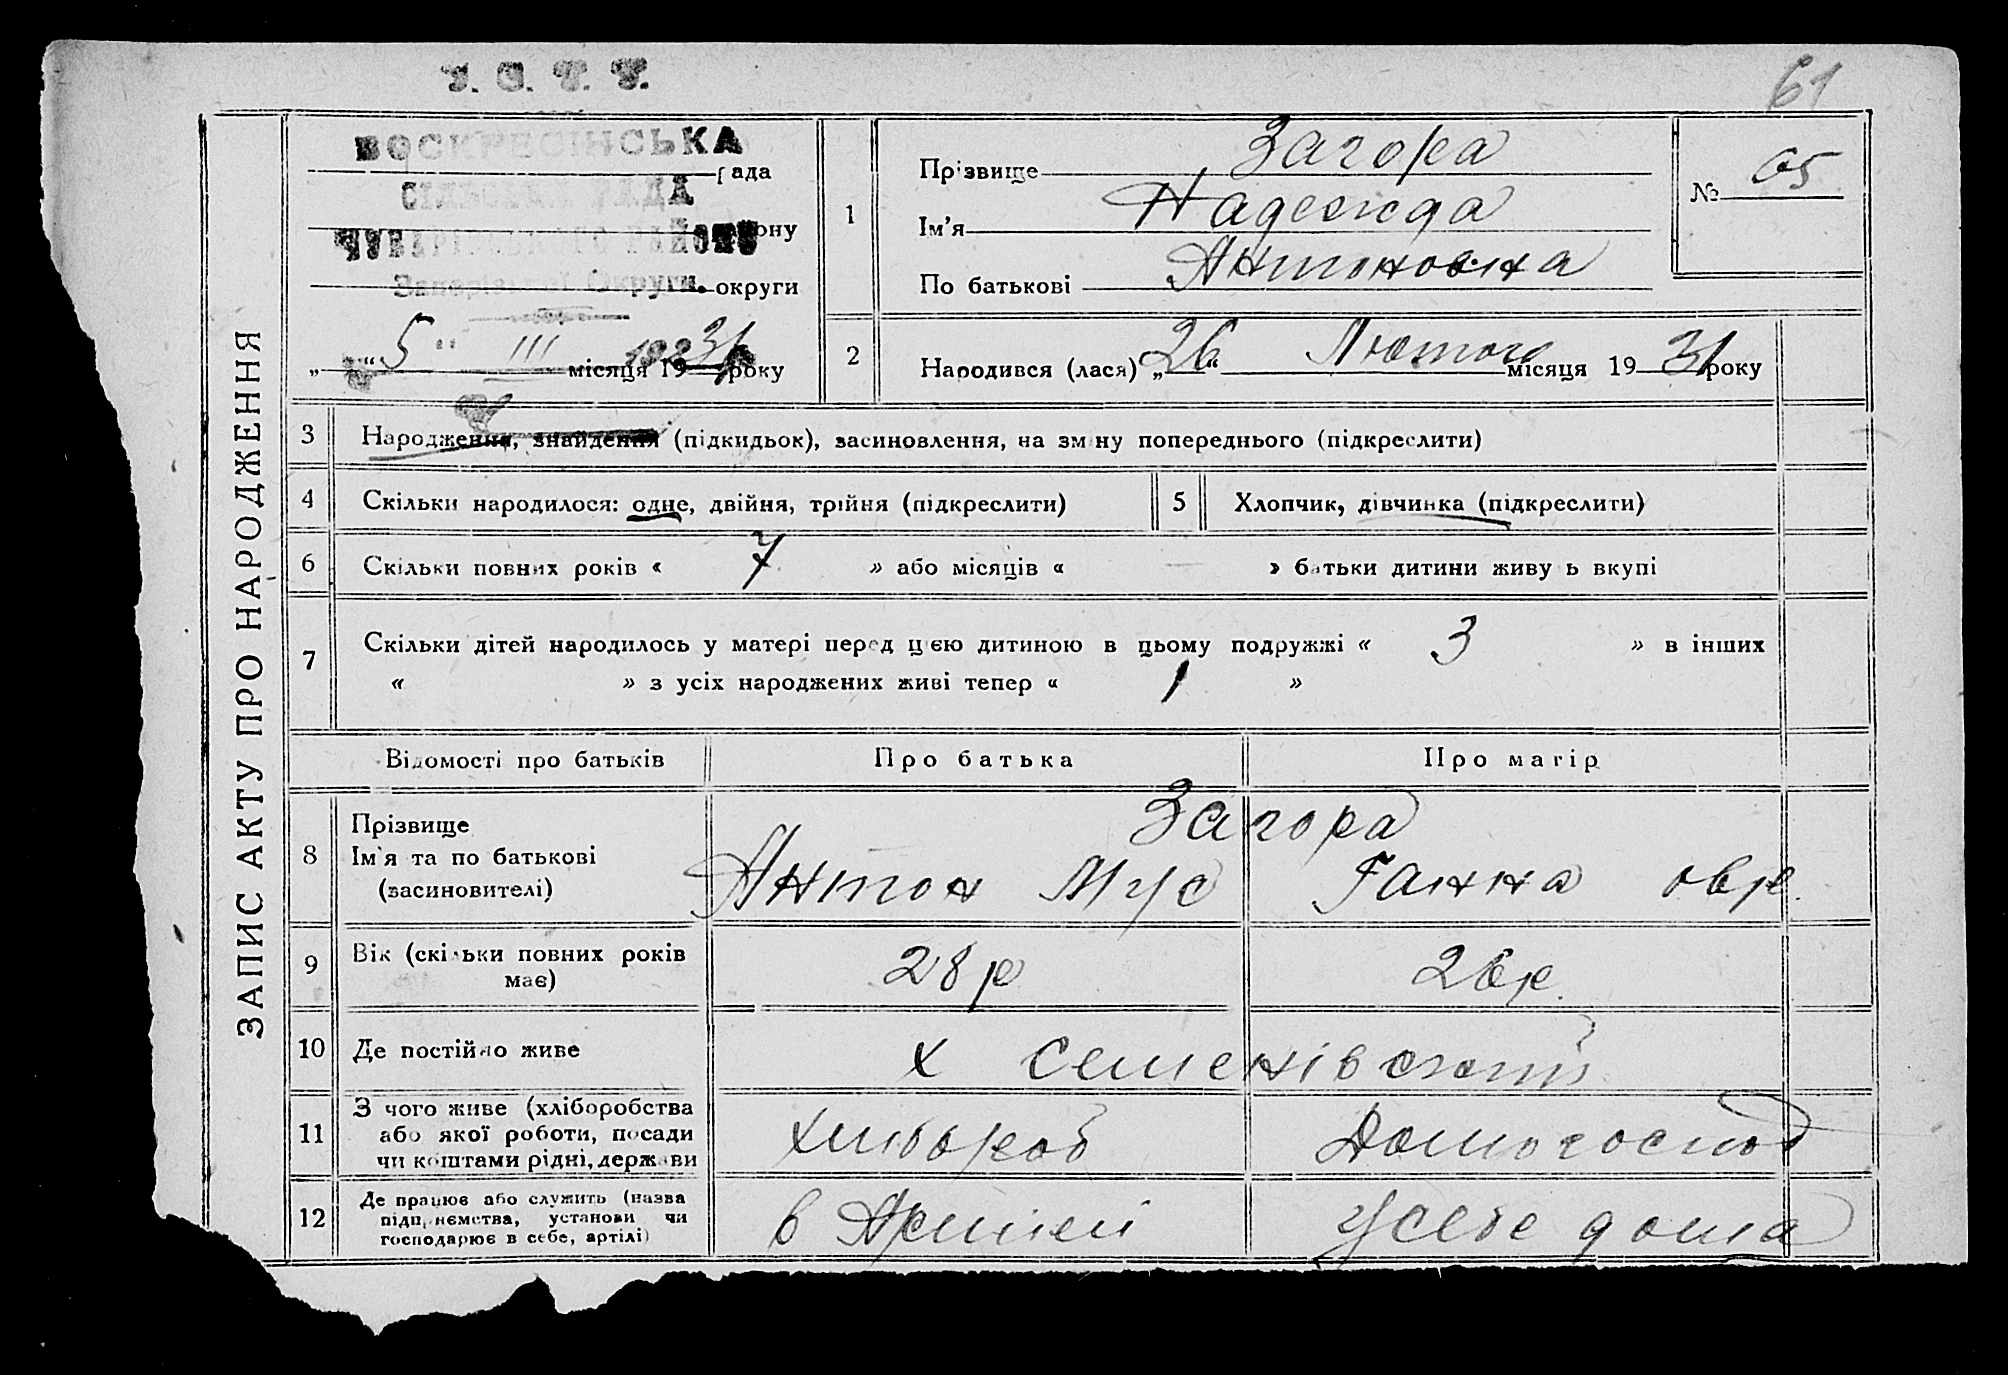 У. С. Р. Р.
61
ВОСКРЕСІНСЬКА
рада
СІЛЬСЬКА РАДА
ЧУБАРІВСЬКОГО РАЙОНУ
Запорізької Округи.
округи
„5" III місяця 1931 року
ЗАПИС АКТУ ПРО НАРОДЖЕННЯ
1
Прізвище Загора
Ім'я Надежда
По батькові Антоновна
№ 65
2
Народився (лася) „26" Лютого місяця 1931 року
3
Народження, знайдення (підкидьок), засиновлення, на зміну попереднього (підкреслити)
4
Скільки народилося: одне, двійня, трійня (підкреслити)
5
Хлопчик, дівчинка (підкреслити)
6
Скільки повних років « 7 » або місяців « — » батьки дитини живуть вкупі
7
Скільки дітей народилось у матері перед цією дитиною в цьому подружжі « 3 » в інших
« » з усіх народжених живі тепер « 1 »
Відомості про батьків
Про батька
Про матір
8
Прізвище
Ім'я та по батькові
(засиновителі)
Загора
Антон Мус
Ганна
9
Вік (скільки повних років
має)
28 р
26 р.
10
Де постійно живе
х Семенівский
11
З чого живе (хліборобства
або якої роботи, посади
чи коштами рідні, держави
Хлібороб
Домогоспод
12
Де працює або служить (назва
підприємства, установи чи
господарює в себе, артілі)
в Армиеи
У себе дома